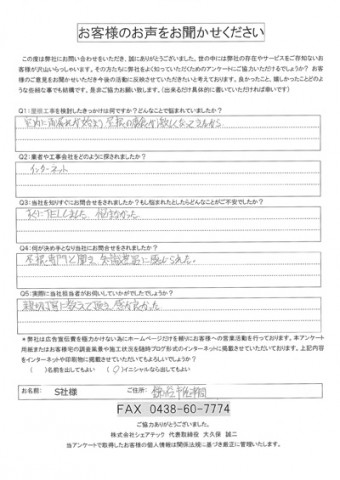 お客様のお声をお聞かせください
この度は弊社にお問い合わせをいただき、誠にありがとうございました。世の中には弊社の存在やサービスをご存知ないお
客様が沢山いらっしゃいます。その方たちに弊社をよく知っていただくためのアンケートにご協力いただけるでしょうか? お客
様のご意見をお聞かせいただき今後の活動に反映させていただきたいと考えております。良かったこと、嬉しかったことどのよ
うな些細な事でも結構です。是非ご協力お願い致します。(出来るだけ具体的に書いていただければ幸いです)
Q1:屋根工事を検討したきっかけは何ですか?どんなことで悩まれていましたか?
Q2:業者や工事会社をどのように探されましたか?
インターネット
Q3:当社を知りすぐにお問合せをされましたか?もし悩まれたとしたらどんなことがご不安でしたか?
すぐにTELしました
Q4:何が決め手となり当社にお問合せをされましたか?
屋根専門と聞き、知識豊富に感じられた。
Q5:実際に当社担当者がお伺いしていかがでしたでしょうか?
親切丁寧に教えて頂き、感じ良かった
*弊社は広告宣伝費を極力かけない為にホームページだけを頼りにお客様への営業活動を行っております。本アンケート
用紙またはお客様宅の調査風景や施工状況を随時ブログ形式のインターネットに掲載させていただいております。上記内容
をインターネットや印刷物に掲載させていただいてもよろしいでしょうか?
( )名前を出してもよい (○)イニシャルなら出してもよい
お名前: S社様 ご住所:
FAX 0438-60-7774
ご協力ありがとうございました。
株式会社シェアテック 代表取締役 大久保 誠二
当アンケートで取得したお客様の個人情報は関係法規に基づき厳正に管理いたします。